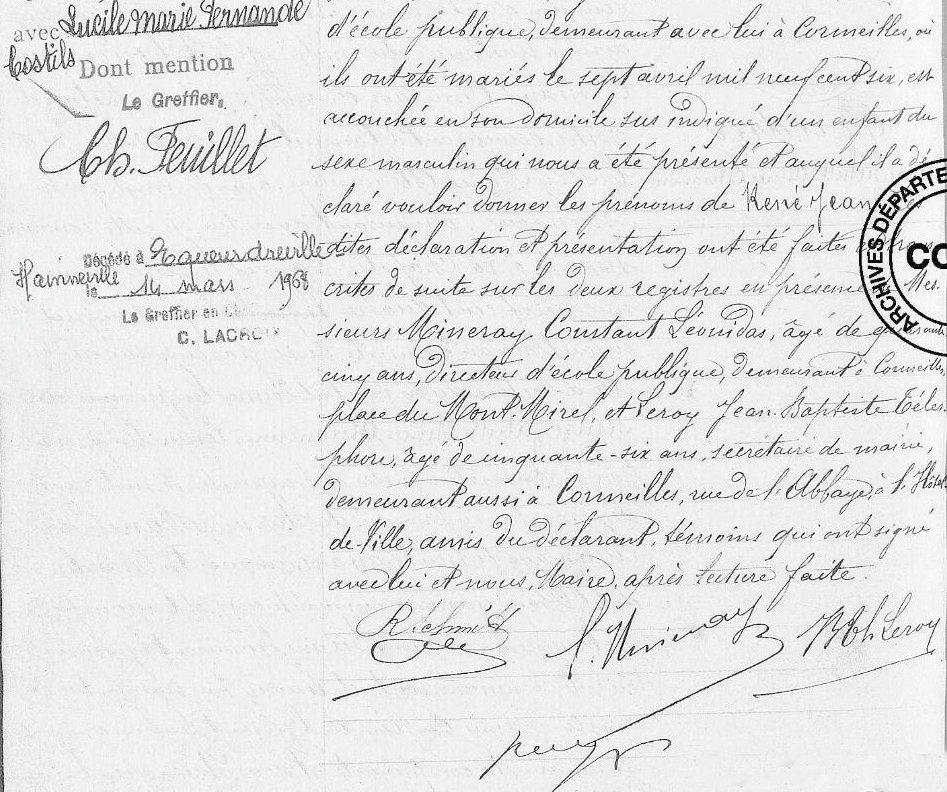 avec Lucile Marie Fernande
Costils
Dont mention
Le Greffier,
Ch. Feuillet
Décédé à Equeurdreville
Hainneville
le 14 mars 1968
Le Greffier en
C. LACROIX
d'école publique, demeurant avec lui à Cormeilles, où
ils ont été mariés le sept avril mil neuf cent six, est
accouchée en son domicile sus indiqué d'un enfant du
sexe masculin qui nous a été présenté et auquel il a dé
claré vouloir donner les prénoms de René Jean
dites déclaration et présentation ont été faites
crites de suite sur les deux registres en présence Mes
sieurs Mineray Constant Léonidas, âgé de quarante
cinq ans, directeur d'école publique, demeurant à Cormeilles,
place du Mont-Mirel, et Leroy Jean-Baptiste Téles
phore, âgé de cinquante-six ans, secrétaire de mairie,
demeurant aussi à Cormeilles, rue de l'Abbaye, à l'Hôtel
de-Ville, amis du déclarant, témoins qui ont signé
avec lui et nous, Maire, après lecture faite.
Leroy
ARCHIVES DÉPARTE
CO